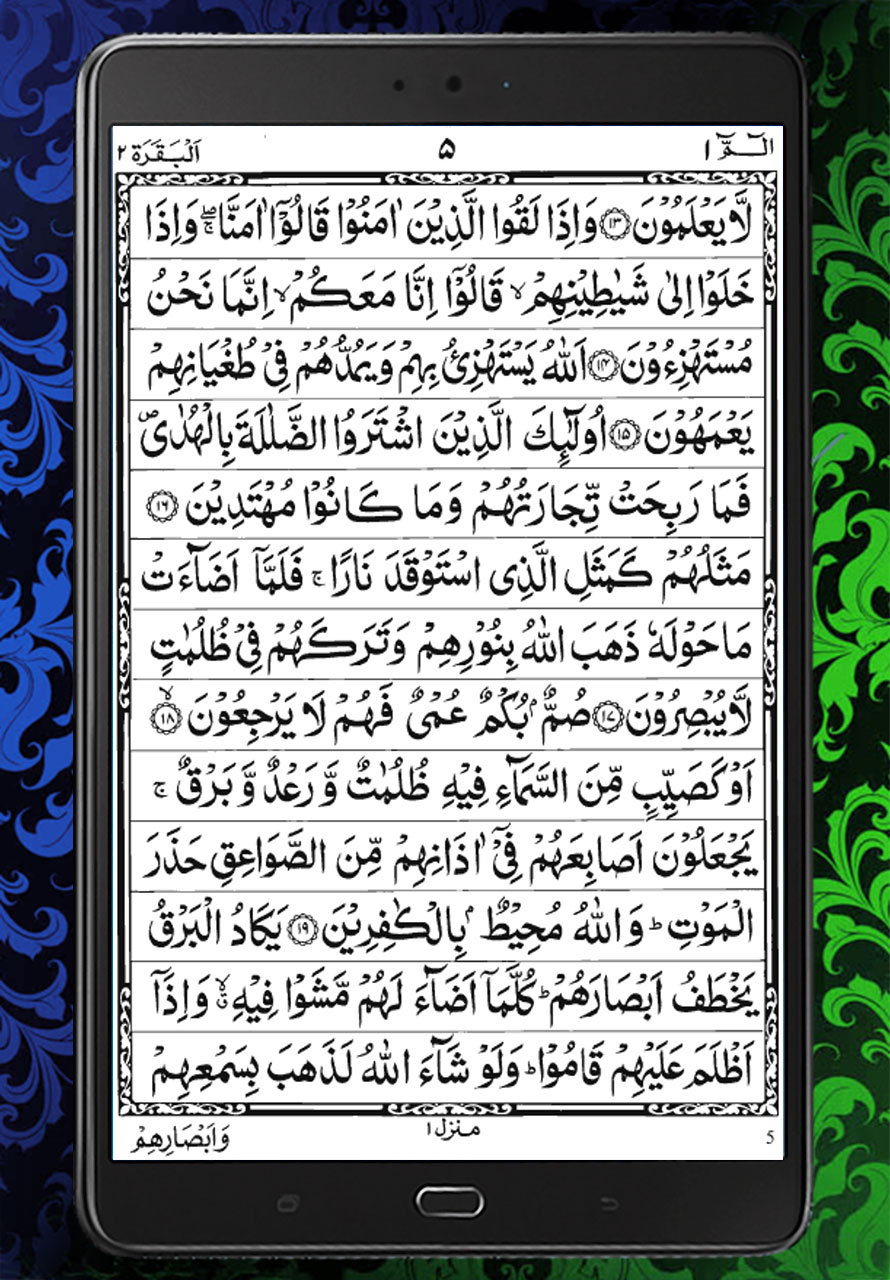 الٓـمّٓ ١ ۵ اَلْبَقَرَة ٢
لَّا يَعْلَمُوْنَ ﴿١٣﴾ وَاِذَا لَقُوا الَّذِيْنَ اٰمَنُوْا قَالُوْٓا اٰمَنَّا ۖۚ وَاِذَا
خَلَوْا اِلٰى شَيٰطِيْنِهِمْ ۙ قَالُوْٓا اِنَّا مَعَكُمْ ۙ اِنَّمَا نَحْنُ
مُسْتَهْزِءُوْنَ ﴿١۴﴾ اَللّٰهُ يَسْتَهْزِئُ بِهِمْ وَيَمُدُّهُمْ فِيْ طُغْيَانِهِمْ
يَعْمَهُوْنَ ﴿١۵﴾ اُولٰٓئِكَ الَّذِيْنَ اشْتَرَوُا الضَّلٰلَةَ بِالْهُدٰى ۪
فَمَا رَبِحَتْ تِّجَارَتُهُمْ وَمَا كَانُوْا مُهْتَدِيْنَ ﴿١٦﴾
مَثَلُهُمْ كَمَثَلِ الَّذِى اسْتَوْقَدَ نَارًا ۚ فَلَمَّآ اَضَآءَتْ
مَا حَوْلَهٗ ذَهَبَ اللّٰهُ بِنُوْرِهِمْ وَتَرَكَهُمْ فِيْ ظُلُمٰتٍ
لَّا يُبْصِرُوْنَ ﴿١٧﴾ صُمٌّۢ بُكْمٌ عُمْىٌ فَهُمْ لَا يَرْجِعُوْنَ ﴿١٨﴾ ۙ
اَوْ كَصَيِّبٍ مِّنَ السَّمَآءِ فِيْهِ ظُلُمٰتٌ وَّرَعْدٌ وَّبَرْقٌ ۚ
يَجْعَلُوْنَ اَصَابِعَهُمْ فِيْٓ اٰذَانِهِمْ مِّنَ الصَّوَاعِقِ حَذَرَ
الْمَوْتِ ؕ وَاللّٰهُ مُحِيْطٌۢ بِالْكٰفِرِيْنَ ﴿١٩﴾ يَكَادُ الْبَرْقُ
يَخْطَفُ اَبْصَارَهُمْ ؕ كُلَّمَآ اَضَآءَ لَهُمْ مَّشَوْا فِيْهِ ۙ ق وَاِذَآ
اَظْلَمَ عَلَيْهِمْ قَامُوْا ؕ وَلَوْ شَآءَ اللّٰهُ لَذَهَبَ بِسَمْعِهِمْ
5 منزل ١ وَاَبْصَارِهِمْ